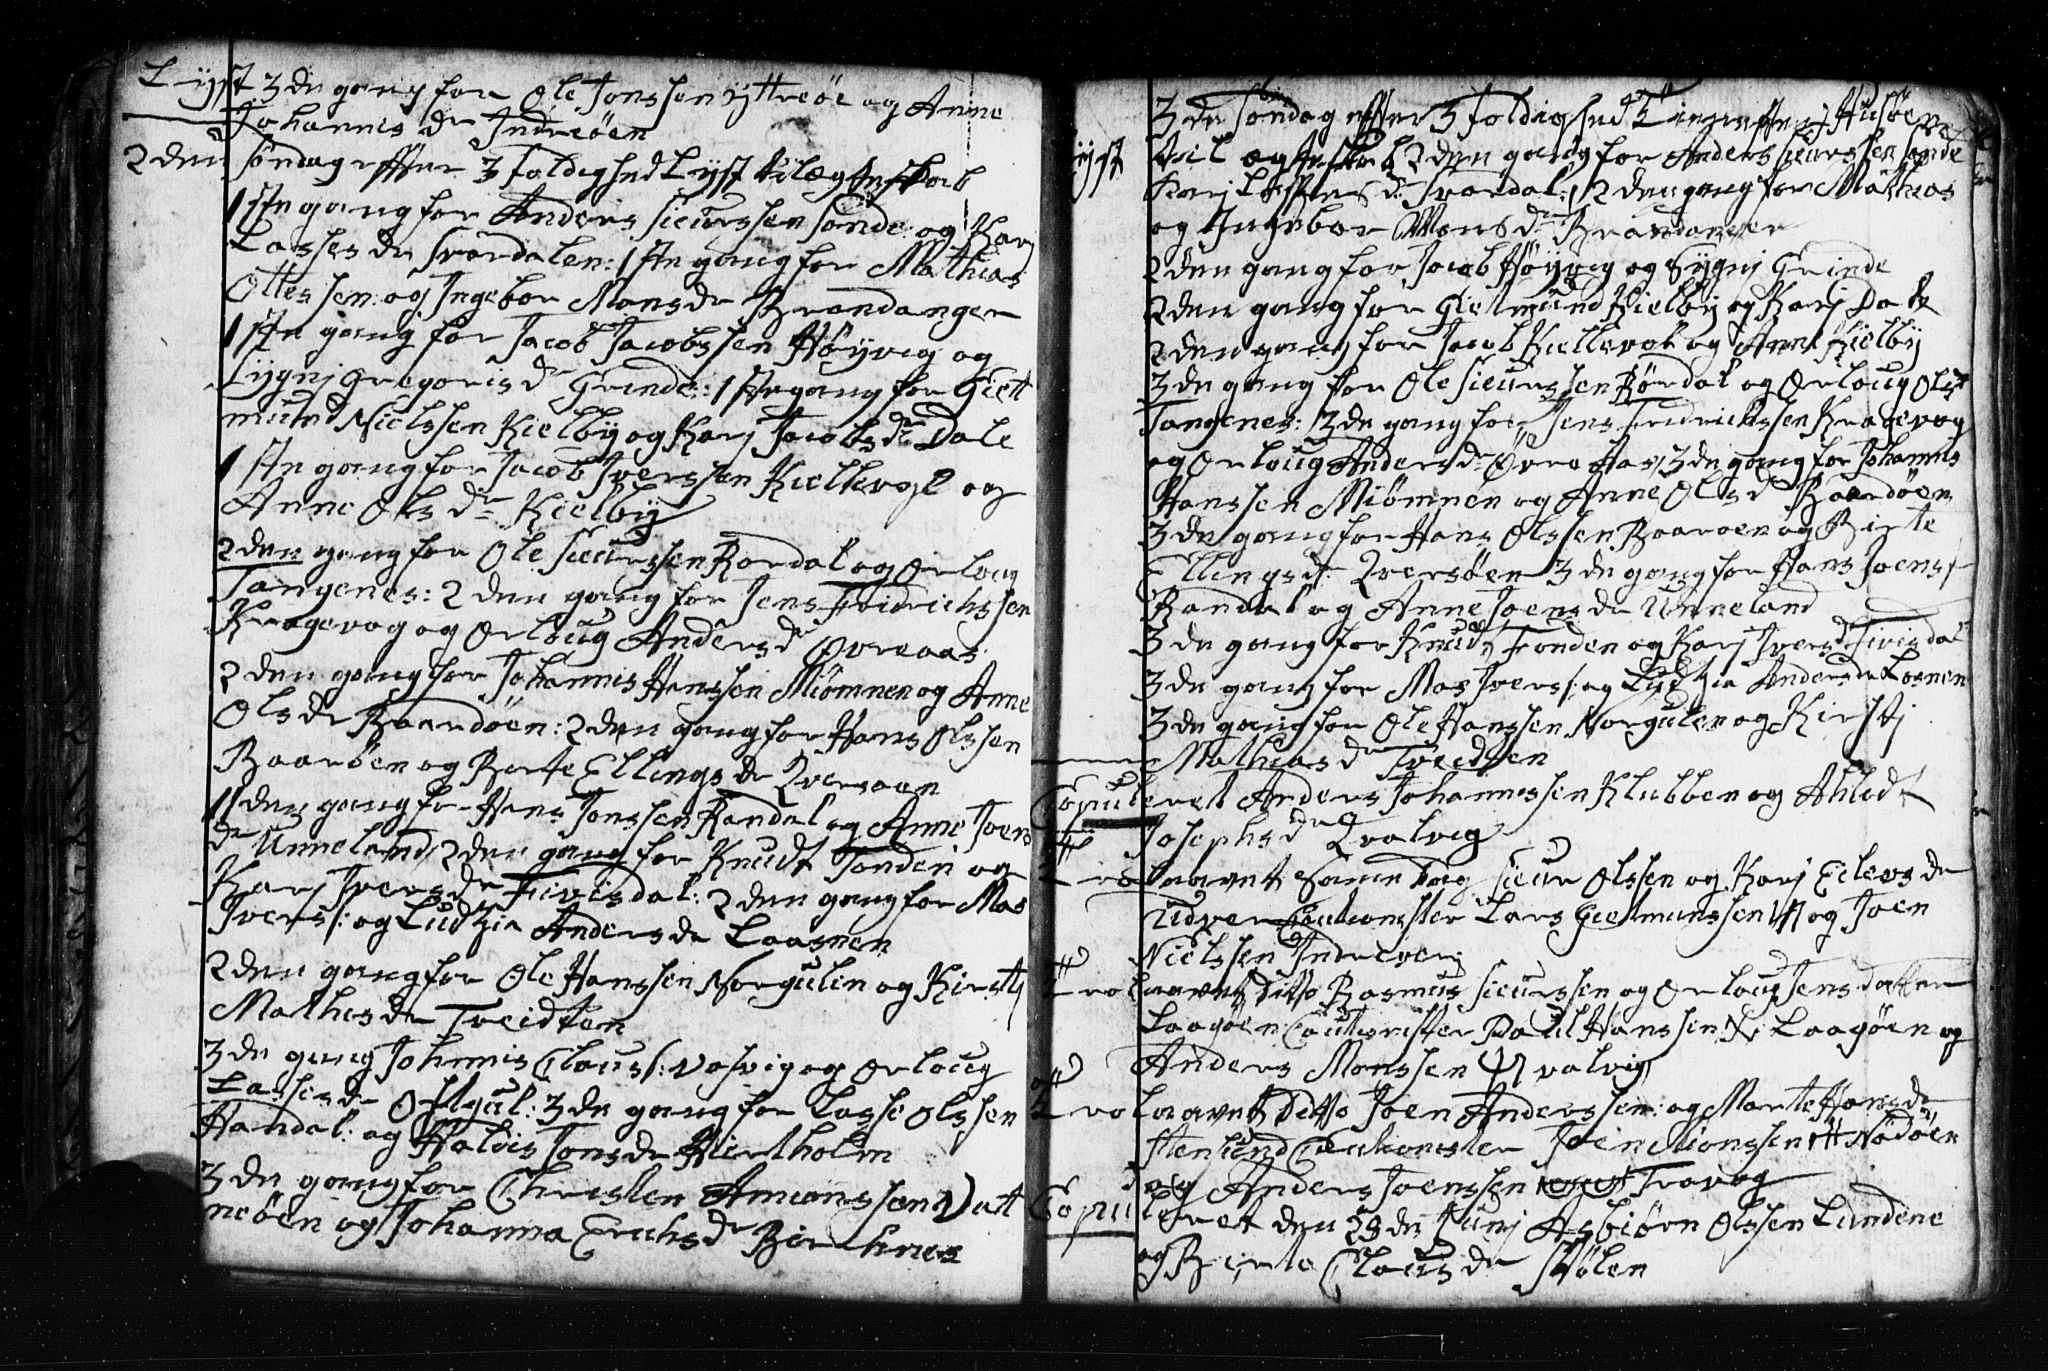 Lyst 3de gang for Ole Jonssen Yttreöe og Anne
Johannis dr Indreöen
2den Söndag effter 3foldighed Lyst til ægteskab
1ste gang for Anders Sieurssen Sande og Karj
Lasses dr Svardalen: 1ste gang for Mathias
Ottessen: og Ingebor Mons dr Brandanger
1ste gang for Jacob Jacobssen Höyvig og
Sygnj Gregoris dr Grinde: 1ste gang for Giett
mund Nielssen Kielby og Karj Jacobs dr Dale
1ste gang for Jacob Iverssen Kiellevol og
Anne Ols dr Kielby
2den gang for Ole Sieurssen Rördal og Orloug
Tangenes: 2den gang for Jens Fridrichssen
Kragevog og Orloug Anders dr Övreaas
2den gang for Johannis Hanssen Miömnen og Anne
Ols dr Baardöen: 2den gang for Hans Olssen
Baaröen og Berte Ellings dr Qversöen
den gang for Hans Jonssen Randal og Anne Joens
dr Unneland, 2den gang for Knudt Fonden og
Karj Ivers dr Fivisdal: 2den gang for Mas
Iverss: og Ludzia Anders dr Laasnen
2den gang for Ole Hanssen Norgulen og Kirstj
Mathis dr Tveidten
3de gang Johannis Clauss: Vasvig og Orloug
Lasses dr: 3de gang for Lasse Olssen
Handal: og Halvis Jons dr Hiertholm
3de gang for Christen Amunssen Vatt
neöen og Johanna Erichs dr Birchnes
3de Söndag effter 3foldighed Husöen
Lyst til ægteskab 2den gang for Anders Sieurssen Sande
Karj Lasses dr Svardal: 2den gang for Mathias
og Ingebor Mons dr Brandanger
2den gang for Jacob Höyvig og Sygnj Grinde
2den gang for Gietmund Kielby og Karj Dale
2den gang for Jacob Kiellevol og Anne Kielby
3de gang for Ole Sieurssen Rördal og Orloug Ols dr
Tangenes: 3de gang for Jens Fredrichssen Kragevog
og Orloug Anders dr Övre Aas, 3de gang for Johannis
Hanssen Miömnen og Anne Ols dr Baardöen
3de gang for Hans Olssen Baaröen og Birte
Ellings dr: Qversöen 3de gang for Hans Joenss
Randal og Anne Joens dr Unneland
3de gang for Knudt Fonden og Karj Ivers dr Fivisdal
3de gang for Mas Iverss: og Ludzia Anders dr Losnen
3de gang for Ole Hanssen Norgulen og Kirstj
Mathias dr Tveidten
Copuleret Anders Johannessen Klubben og Ahlidt
Josephs dr Qvalvig
Trolaavet Same Dag Sieur Olssen og Karj Eilevs dr
Cautionister Lars Gietmunssen og Joen
Nielssen Indrevær
Trolaavet Ditto Rasmus Sieurssen og Orloug Jens datter
Laagöen Cautionister Paul Hanssen Laagöen og
Anders Monssen Qvalvig
Trolaavet Ditto Joen Anderssen: og Marte Hans dr
Stensund Cautionister Joen Monssen Nödöen
og Anders Joenssen Travog
Copuleret den 28de Junj Asbiörn Olssen Lundene
og Birte Claus dr Stölen